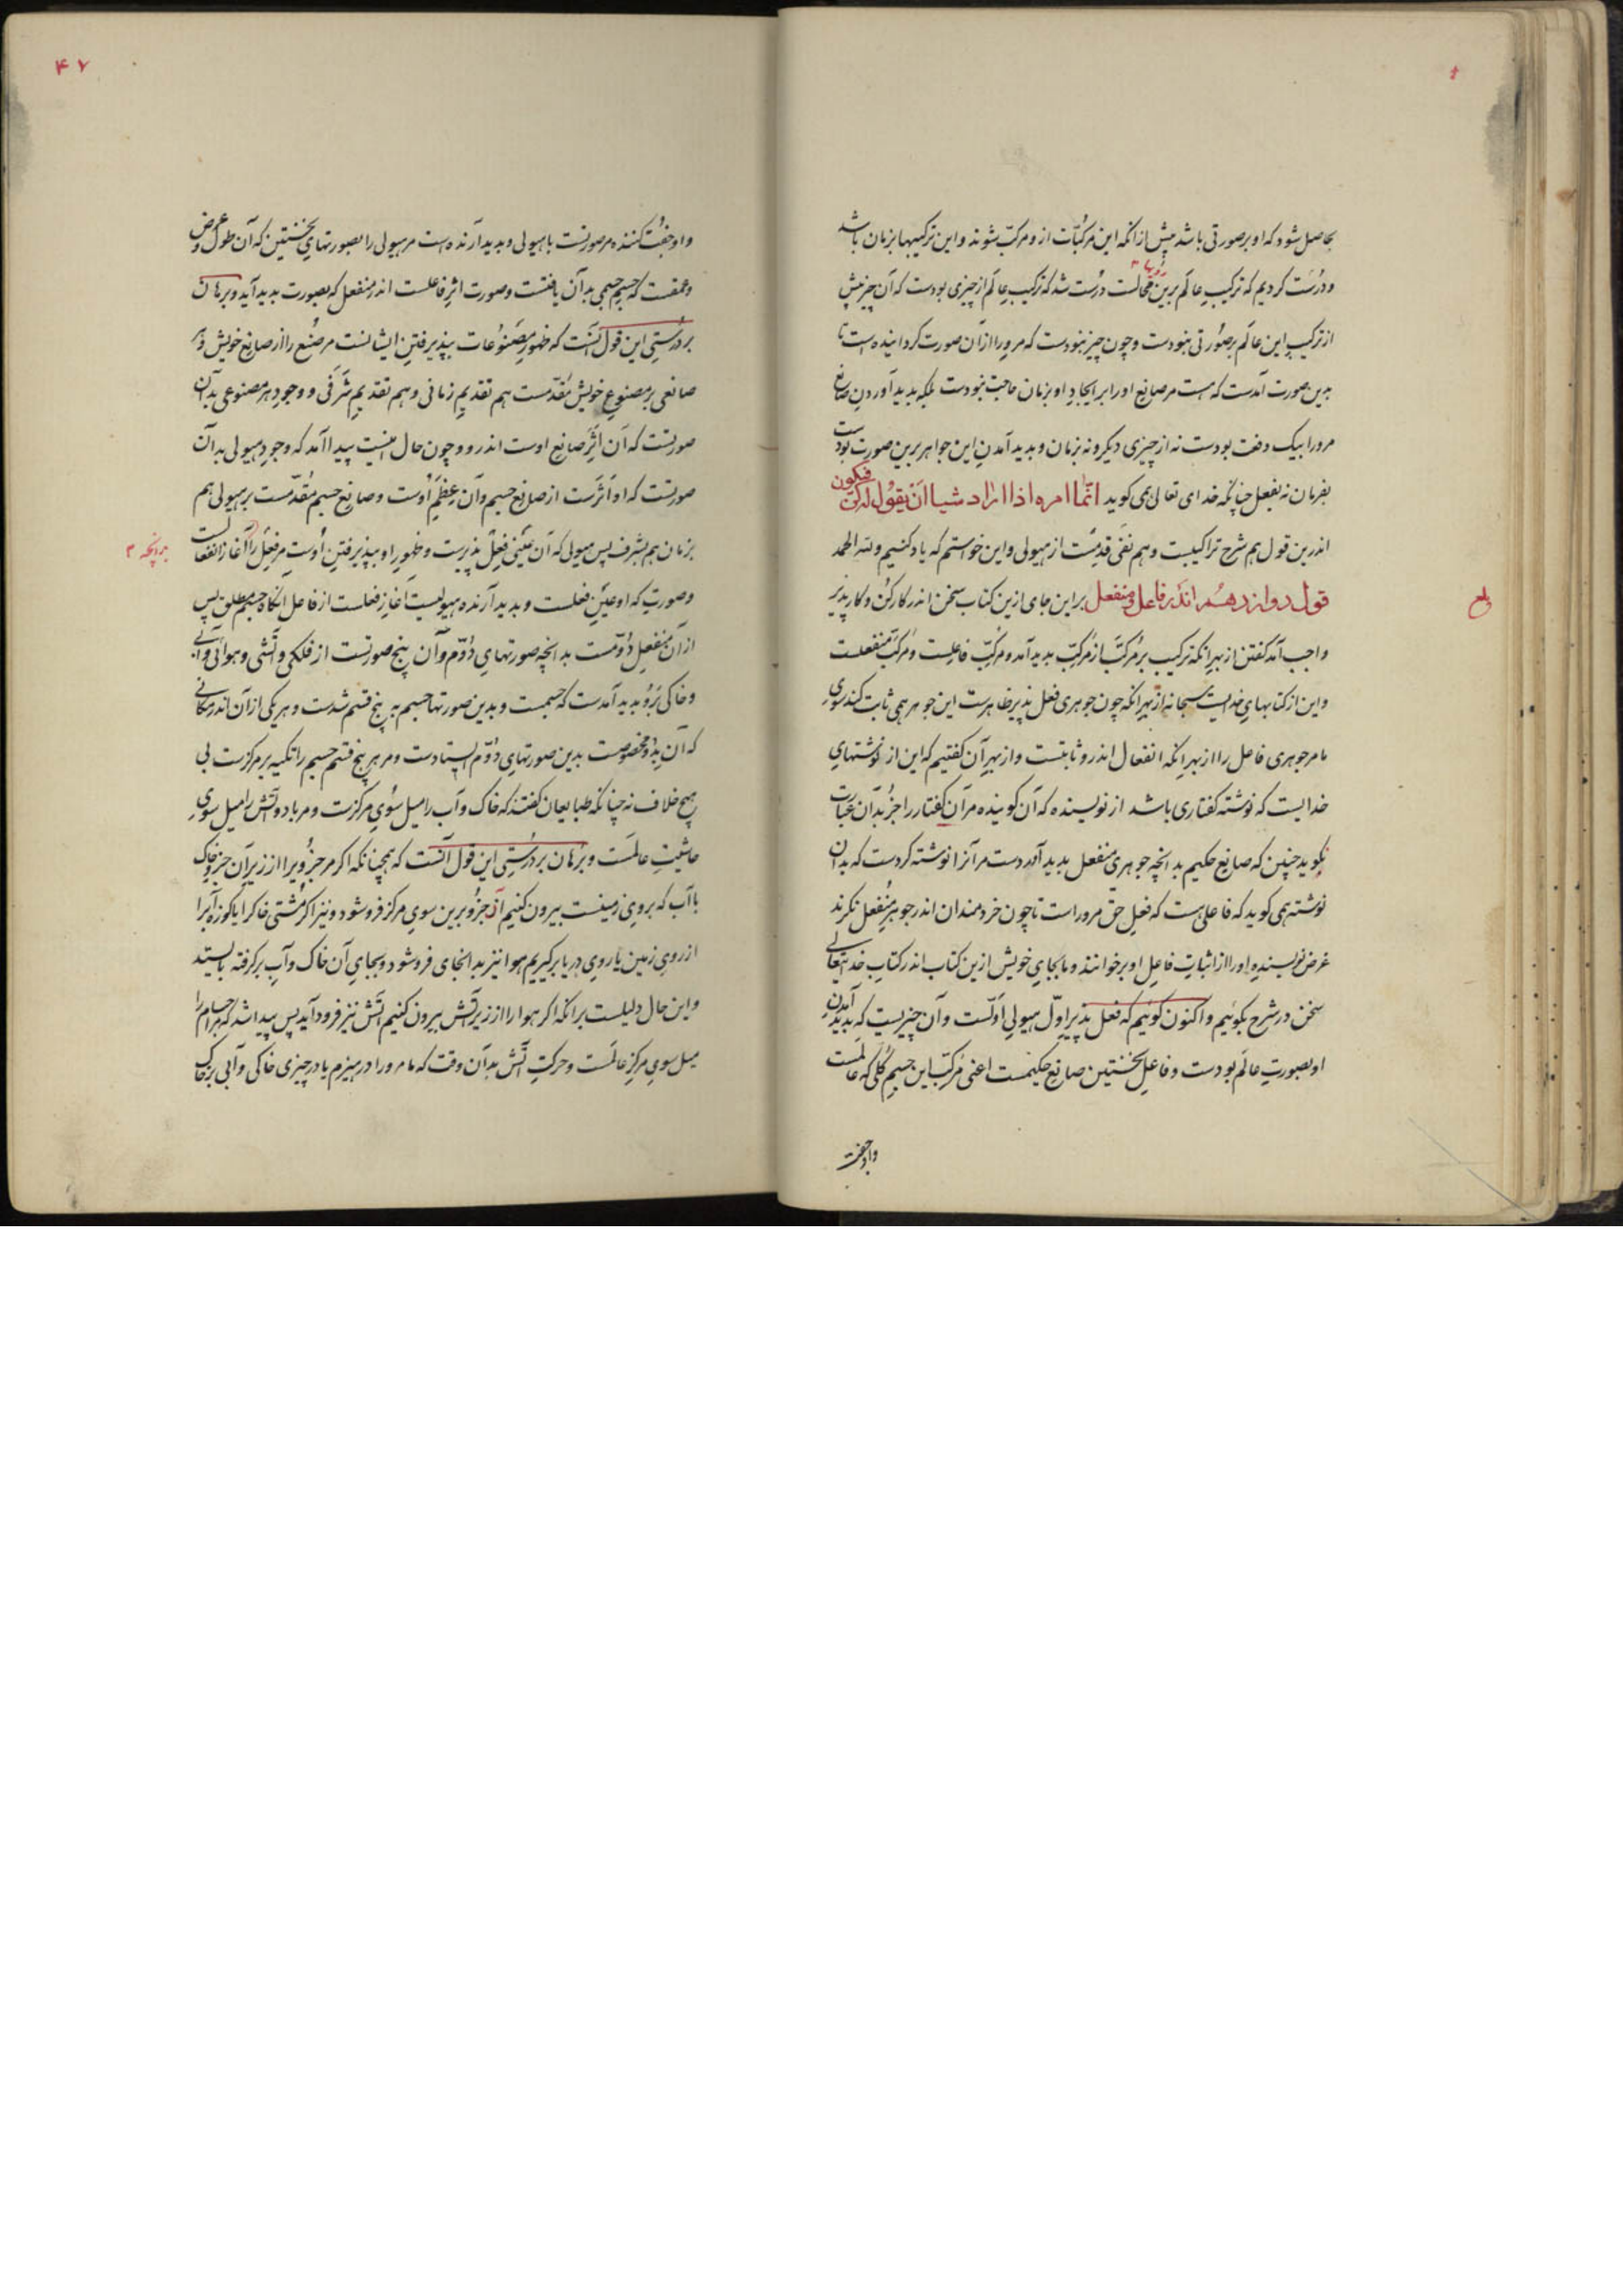 بحاصل شود که او بر صورتی باشد پیش ازانکه این مرکبات ازو مرکب شوند و این ترکیبها بزمان باشد
و درست کردیم که ترکیب عالم برین محالست درست شد که ترکیب عالم از چیزی بودست که آن چیز پیش
از ترکیب این عالم بر صورتی نبودست و چون چیز نبودست که مرورا ازان صورت کردانیده است تا
بدین صورت آمدست که هست مر صانع اورا بر ایجاد او بزمان حاجت نبودست بلکه بدید آوردن صانع
مرورا بیک دفعت بودست نه از چیزی دیکر و نه بزمان و بدید آمدن این جواهر برین صورت بودست
بفرمان نه بفعل چنانکه خدای تعالی همی کوید انّما امره اذا اراد شیا ان یقول له کن فیکون
اندرین قول هم شرح تراکیبست و هم نفی قدمست از هیولی و این خواستیم که یاد کنیم ولله الحمد
قول دوازدهم اندر فاعل و منفعل براین جای ازین کتاب سخن اندر کارکن و کارپذیر
بلغ
واجب آمد کفتن از بهر انکه ترکیب بر مرکب از مرکب بدید آمد و مرکب فاعلست و مرکب منفعلست
و این از کتابهای خدایست سبحانه از بهر انکه چون جوهری فعل پذیر ظاهرست این جوهر همی ثابت کند سوی
ما مر جوهری فاعل را از بهر انکه انفعال اندرو ثابتست و از بهر آن کفتیم که این از نوشتهای
خدایست که نوشته کفتاری باشد از نویسنده که آن کوینده مر آن کفتار را جز بدان عبارت
نکوید چنین که صانع حکیم بدانچه جوهری منفعل بدید آوردست مر آنرا نوشته کردست که بدان
نوشته همی کوید که فاعلی هست که فعل حق مروراست تا چون خردمندان اندر جوهر منفعل نکرند
غرض نویسنده اورا از اثبات فاعل او برخوانند و ما بجای خویش ازین کتاب اندر کتاب خدایتعالی
سخن در شرح بکوئیم و اکنون کوئیم که فعل پذیر اول هیولی اولست و آن چیزیست که بدید آمدن
او بصورت عالم بودست و فاعل نخستین صانع حکیمست اعنی مرکب این جسم کلی که عالمست
واو جفت
۴۷
واو جفت کننده مر صورتست با هیولی و بدید آرنده است مر هیولی را بصورتهای نخستین که آن طول و عرض
و عمقست که جسم جسمی بدان یافتست و صورت اثر فاعلست اندر منفعل که بصورت بدید آید و برهان
بر درستی این قول آنست که ظهور مصنوعات بپذیرفتن ایشانست مر صنع را از صانع خویش و هر
صانعی بر مصنوع خویش مقدمست هم تقدیم زمانی و هم تقدیم شرفی و وجود هر مصنوعی بدان
صورتست که آن اثر صانع اوست اندرو و چون حال اینست پیدا آمد که وجود هیولی بدان
صورتست که او اثرست از صانع جسم و آن عظم اوست و صانع جسم مقدمست بر هیولی هم
بزمان هم بشرف پس هیولی که آن عینی فعل پذیرست و ظهور او بپذیرفتن اوست مر فعل را آغاز انفعالست
بدانچه
و صورت که او عین فعلست و بدید آرنده هیولیست آغاز فعلست از فاعل انکاه جسم مطلق پس
از آن منفعل دومست بدانچه صورتهای دوم و آن پنج صورتست از فلکی و آتشی و هوائی و آبی
و خاکی برو بدید آمدست که جسمست و بدین صورتها جسم به پنج قسم شدست و هر یکی ازان اندر مکانی
که آن بدو مخصوصست بدین صورتهای دوم ایستادست و مر هر پنج قسم جسم را تکیه بر مرکزست بی
هیچ خلاف نه چنانکه طبایعیان کفتند که خاک و آب را میل سوی مرکزست و مر باد و آتش را میل سوی
حاشیت عالمست و برهان بر درستی این قول آنست که همچنانکه اکر مر جزوی را از زیر آن جزو خاک
یا آب که بروی زمینست بیرون کنیم آن جزو برین سوی مرکز فرو شود و نیز اکر مشتی خاک را یا کوزه آب را
از روی زمین یا روی دریا برکیریم هوا نیز بدانجای فرو شود و بجای آن خاک و آب برکرفته بایستد
و این حال دلیلست برانکه اکر هوا را از زیر آتش بیرون کنیم آتش نیز فرود آید پس پیدا شد که مر اجسام را
میل سوی مرکز عالمست و حرکت آتش بدان وقت که ما مرورا در هیزم یا در چیزی خاکی و آبی برخاک